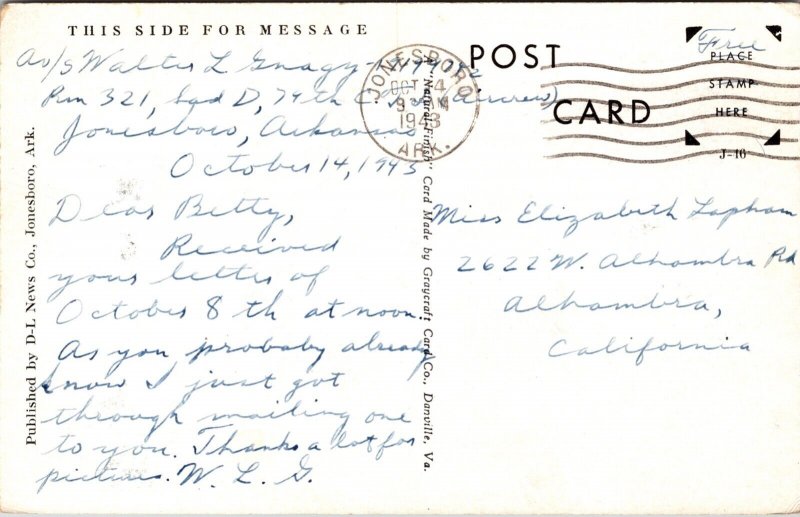 THIS SIDE FOR MESSAGE
Av/S Walter L Gnagy
Rm 321, Sqd D, 79th (Aircrew)
Jonesboro, Arkansas
October 14, 1943
Dear Betty,
Received
your letter of
October 8 th at noon.
As you probaby already
know I just got
through mailing one
to you. Thanks a lot for
pictures. W. L. G.
Published by D-L News Co., Jonesboro, Ark.
"Natural Finish" Card Made by Graycraft Card Co., Danville, Va.
JONESBORO
OCT 14
9 AM
1943
ARK.
POST
CARD
Free
PLACE
STAMP
HERE
J-16
Miss Elizabeth Lapham
2622 W. Alhambra Rd
Alhambra,
California